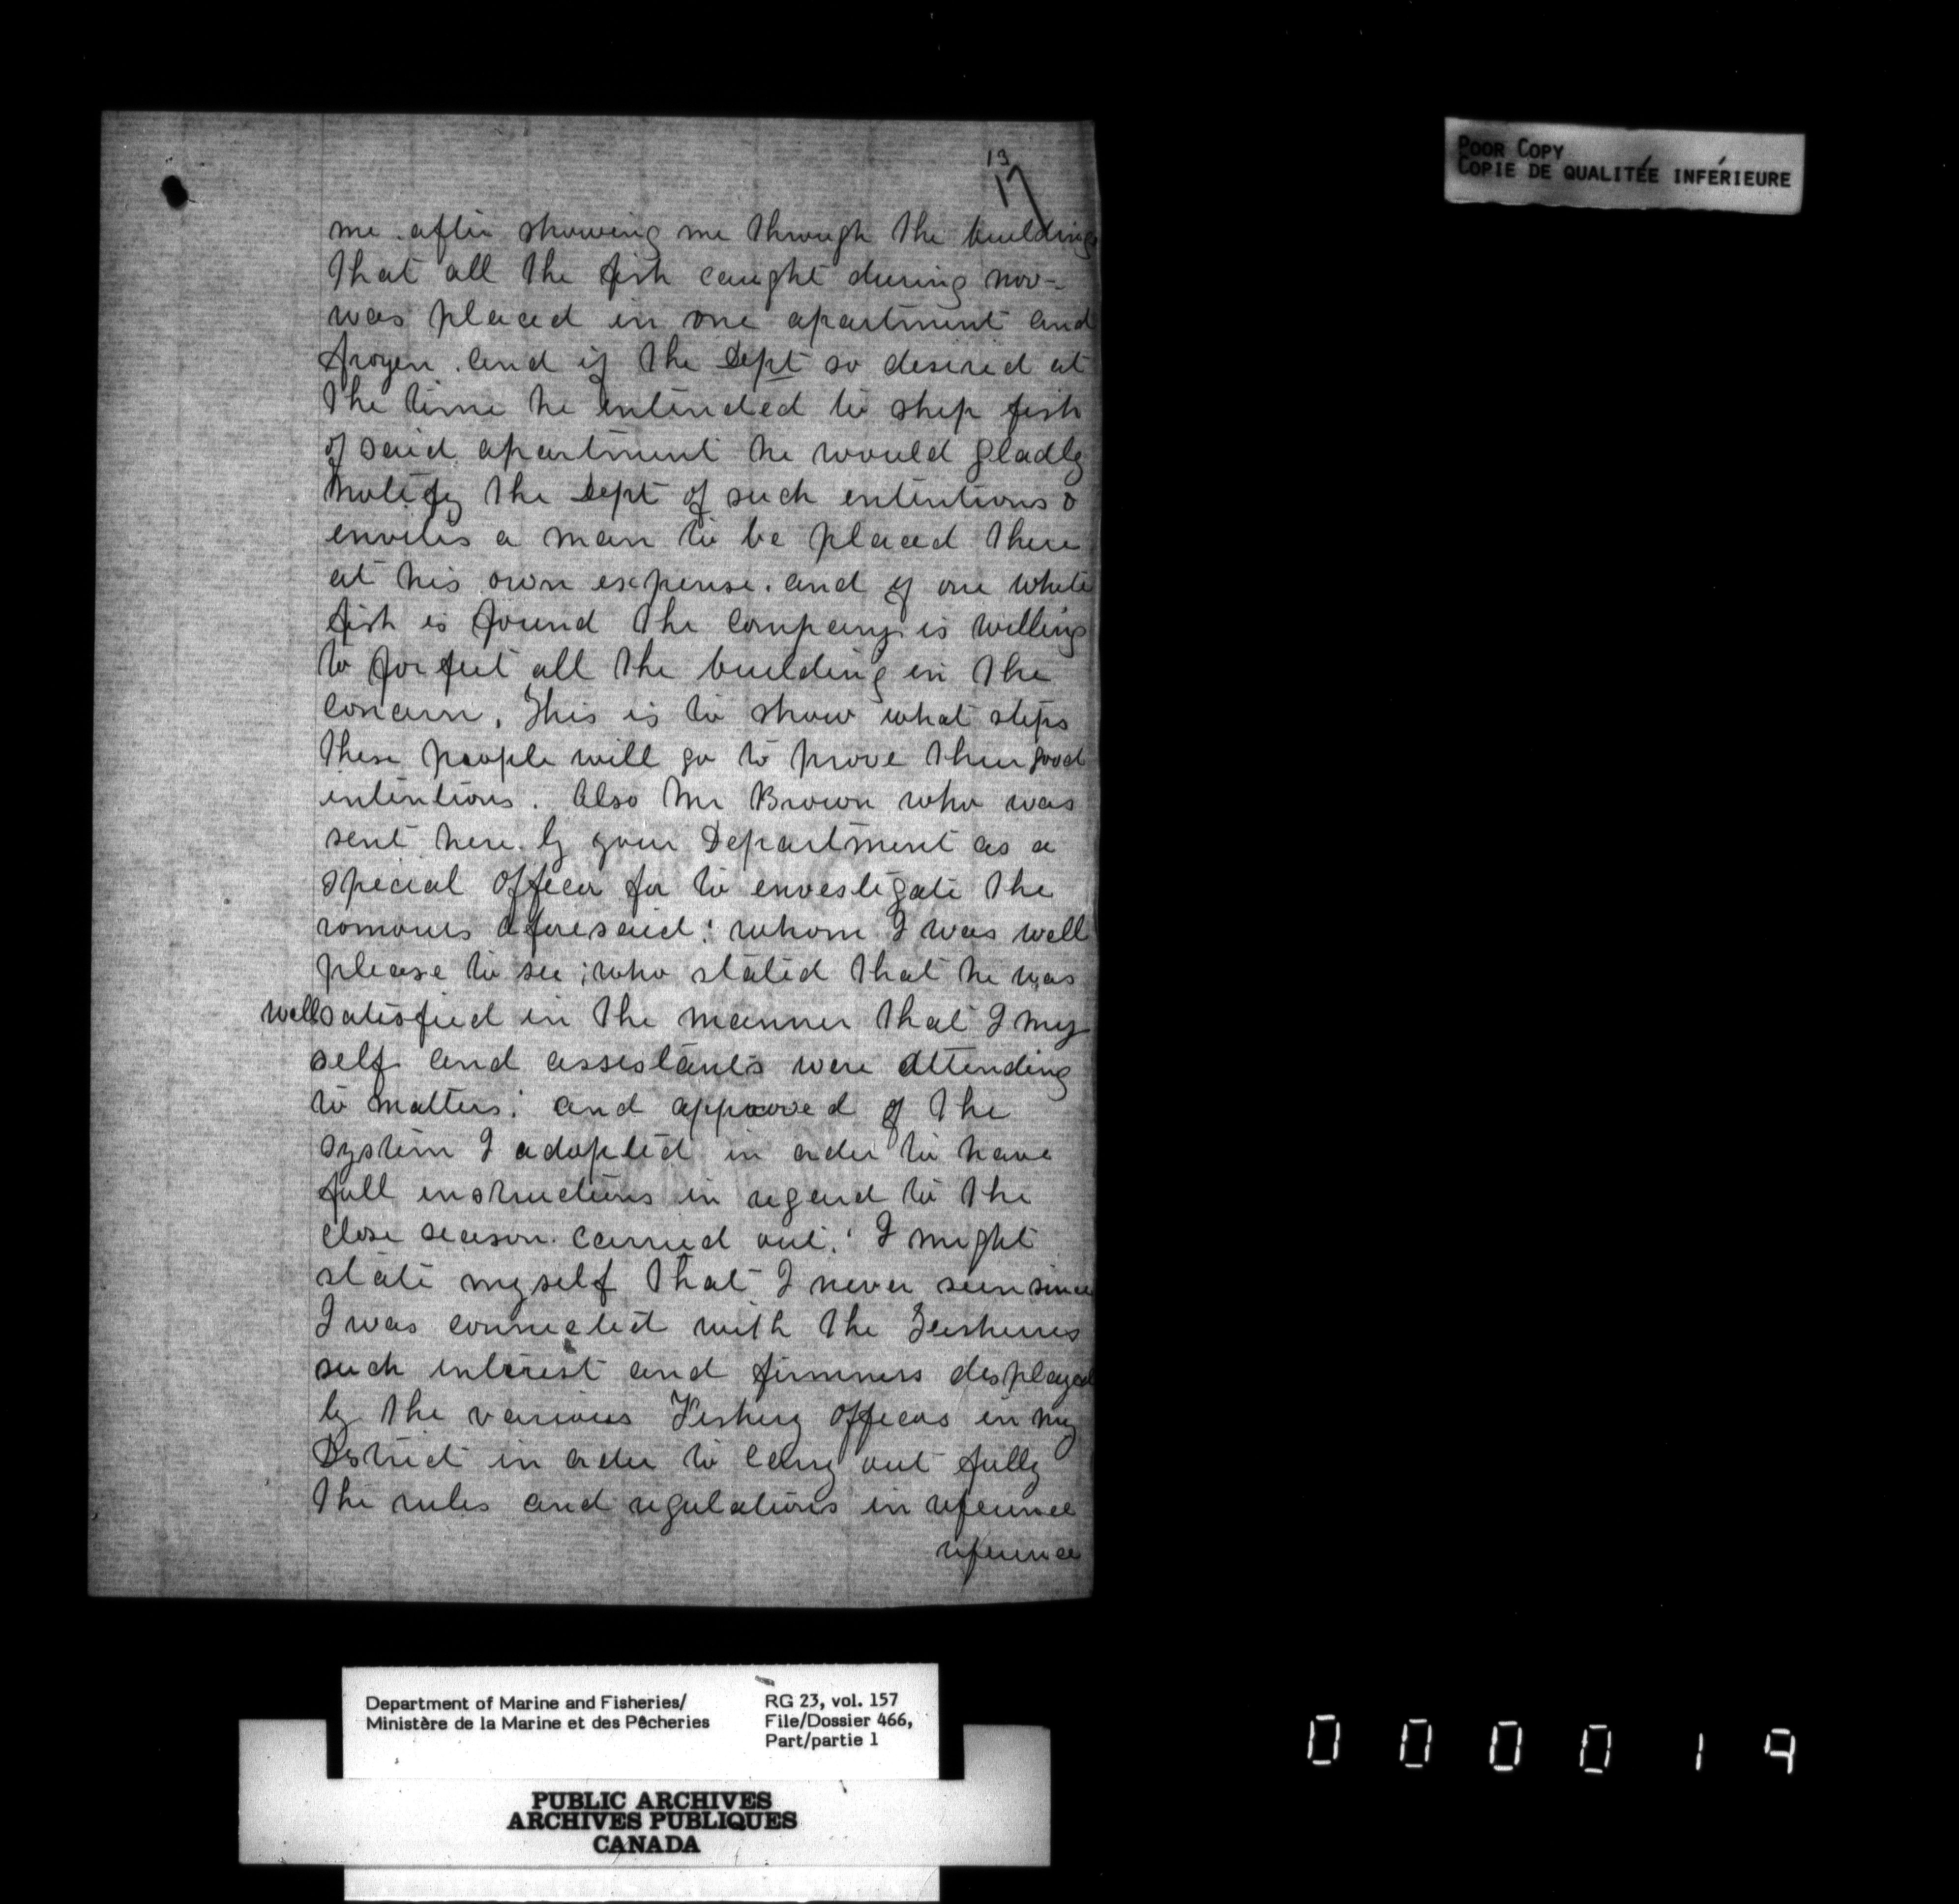 13
17
POOR COPY
COPIE DE QUALITÉE INFÉRIEURE
me. after showing me through the buildings
that all the fish caught during nov-
was placed in one apartment and
frozen. and if the Dept so desired at
the time he entended to ship fish
of said apartment he would gladly
notify the Dept of such ententions &
envites a man to be placed there
at his own expense. and if one white
fish is found the company is willing
to forfeit all the building in the
concern. This is to show what steps
these people will go to prove their good
intentions. Also Mr Brown who was
sent here by your Department as a
special Officer for to envestigate the
romours aforesaid: whom I was well
please to see; who stated that he was
well satisfied in the manner that I my
self and assistants were attending
to matters: and approved of the
system I adopted in order to have
full instructions in regard to the
close season carried out. I might
state myself that I never seen since
I was connected with the Feisheries
such interest and firmness displayed
by the various Fishery Officers in my
District in order to carry out fully
the rules and regulations in reference
reference
Department of Marine and Fisheries/
Ministère de la Marine et des Pêcheries
RG 23, vol. 157
File/Dossier 466,
Part/partie 1
PUBLIC ARCHIVES
ARCHIVES PUBLIQUES
CANADA
000019